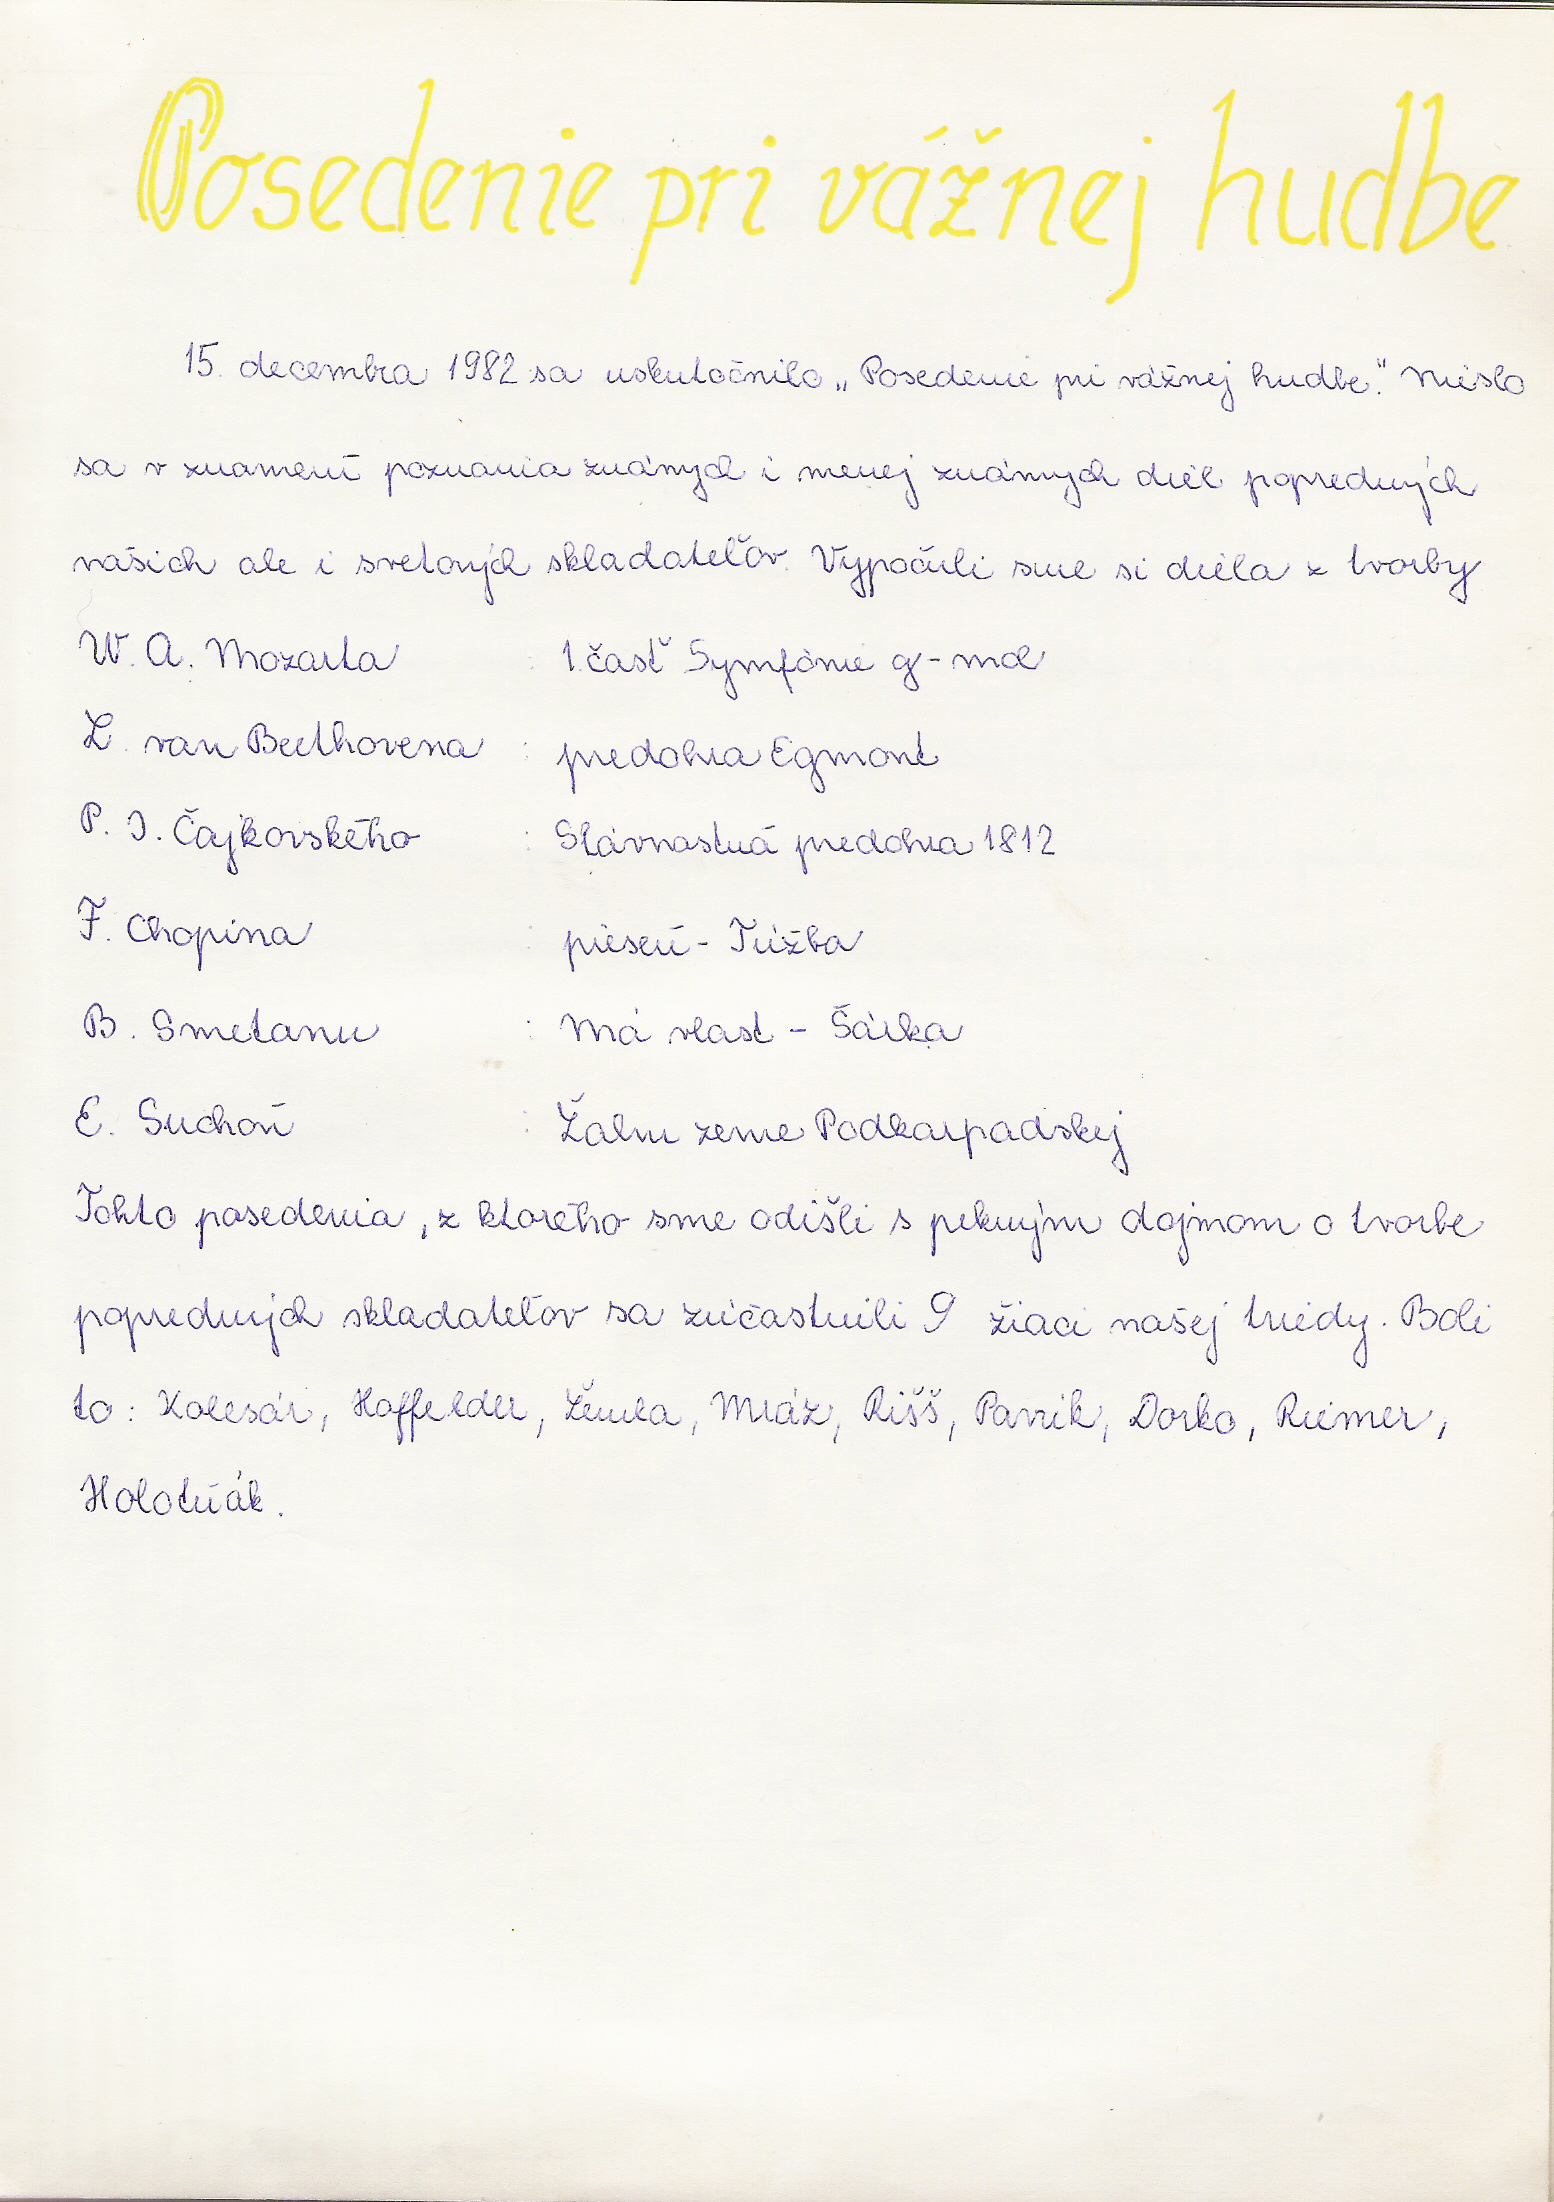 Posedenie pri vážnej hudbe
15. decembra 1982 sa uskutočnilo „Posedenie pri vážnej hudbe." Nieslo
sa v znamení poznania známych i menej známych diel popredných
našich ale i svetových skladateľov. Vypočuli sme si diela z tvorby
W. A. Mozarta : 1. časť Symfónie g-mol
L. van Beethovena : predohra Egmont
P. I. Čajkovského : Slávnostná predohra 1812
F. Chopina : pieseň - Túžba
B. Smetanu : Má vlast - Šárka
E. Suchoň : Žalm zeme Podkarpadskej
Tohto posedenia, z ktorého sme odišli s pekným dojmom o tvorbe
popredných skladateľov sa zúčastnili 9 žiaci našej triedy. Boli
to: Kolesár, Hoffelder, Žemla, Mráz, Rišš, Pavúk, Dorko, Riemer,
Holotňák.